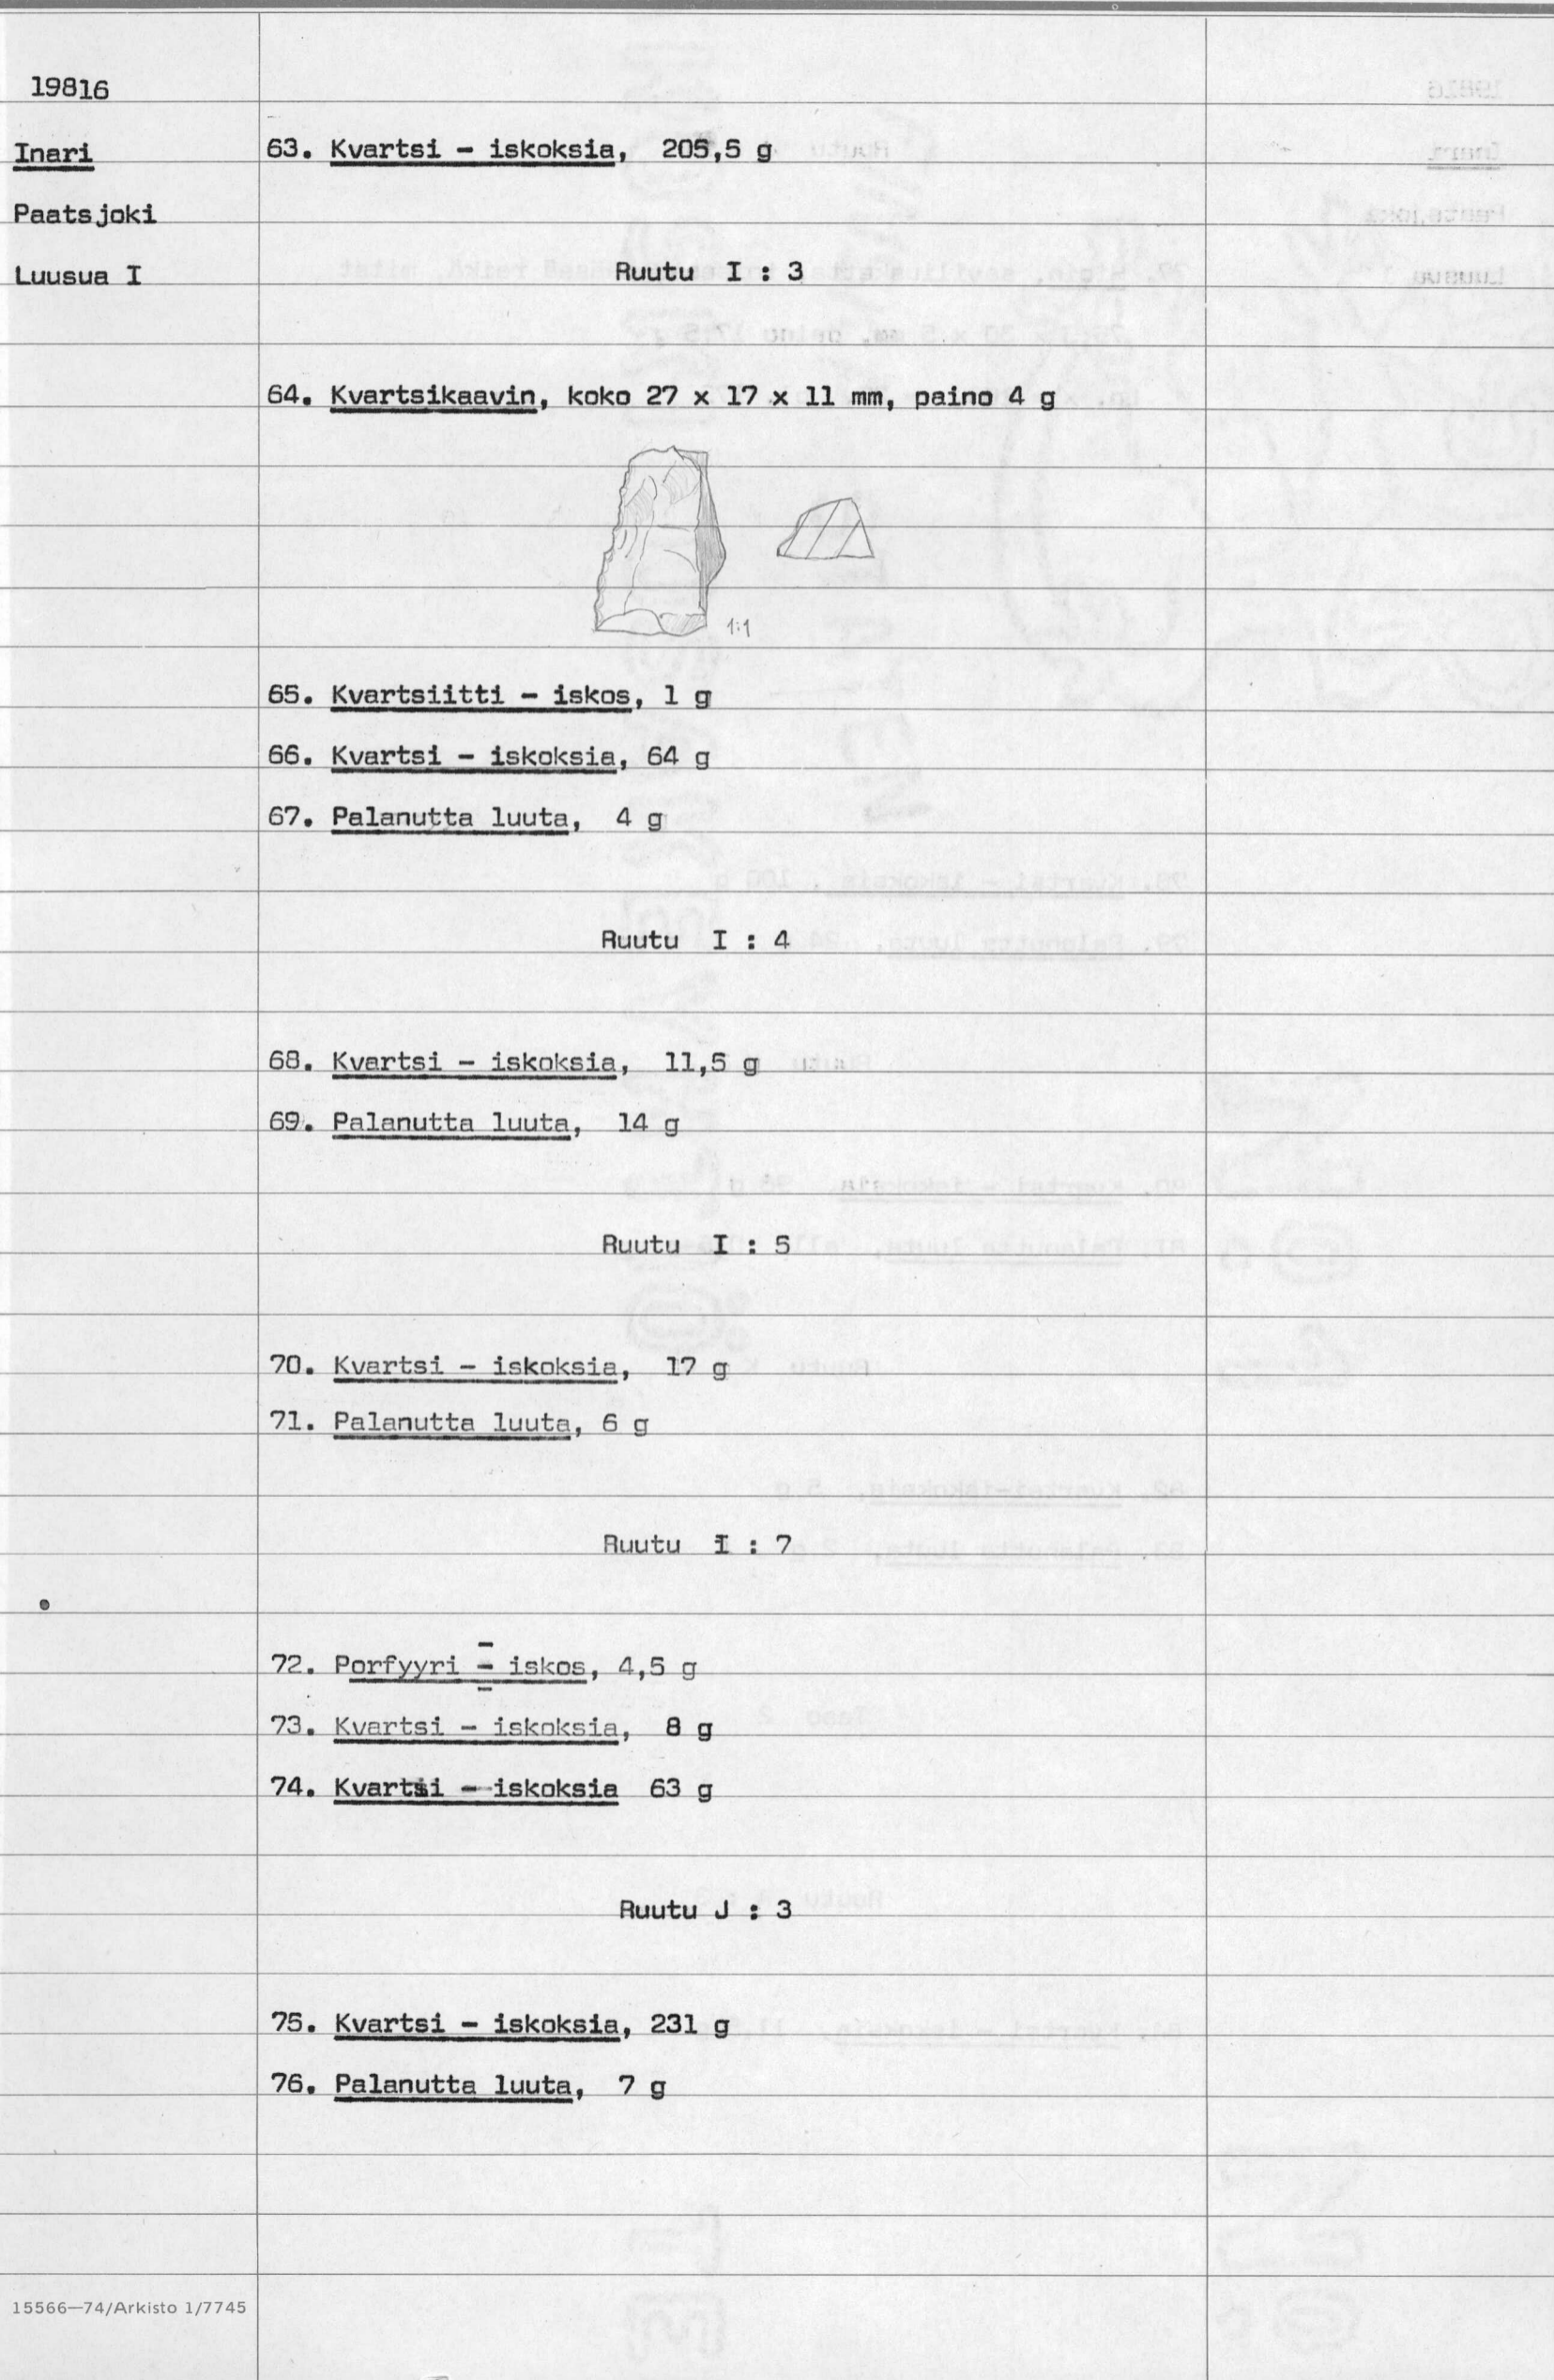 19816
Inari
Paatsjoki
Luusua I
63. Kvartsi - iskoksia, 205,5 g
Ruutu I : 3
64. Kvartsikaavin, koko 27 x 17 x 11 mm, paino 4 g
1:1
65. Kvartsiitti - iskos, 1 g
66. Kvartsi - iskoksia, 64 g
67. Palanutta luuta, 4 g
Ruutu I : 4
68. Kvartsi - iskoksia, 11,5 g
69. Palanutta luuta, 14 g
Ruutu I : 5
70. Kvartsi - iskoksia, 17 g
71. Palanutta luuta, 6 g
Ruutu I : 7
72. Porfyyri - iskos, 4,5 g
73. Kvartsi - iskoksia, 8 g
74. Kvartsi - iskoksia 63 g
Ruutu J : 3
75. Kvartsi - iskoksia, 231 g
76. Palanutta luuta, 7 g
15566—74/Arkisto 1/7745